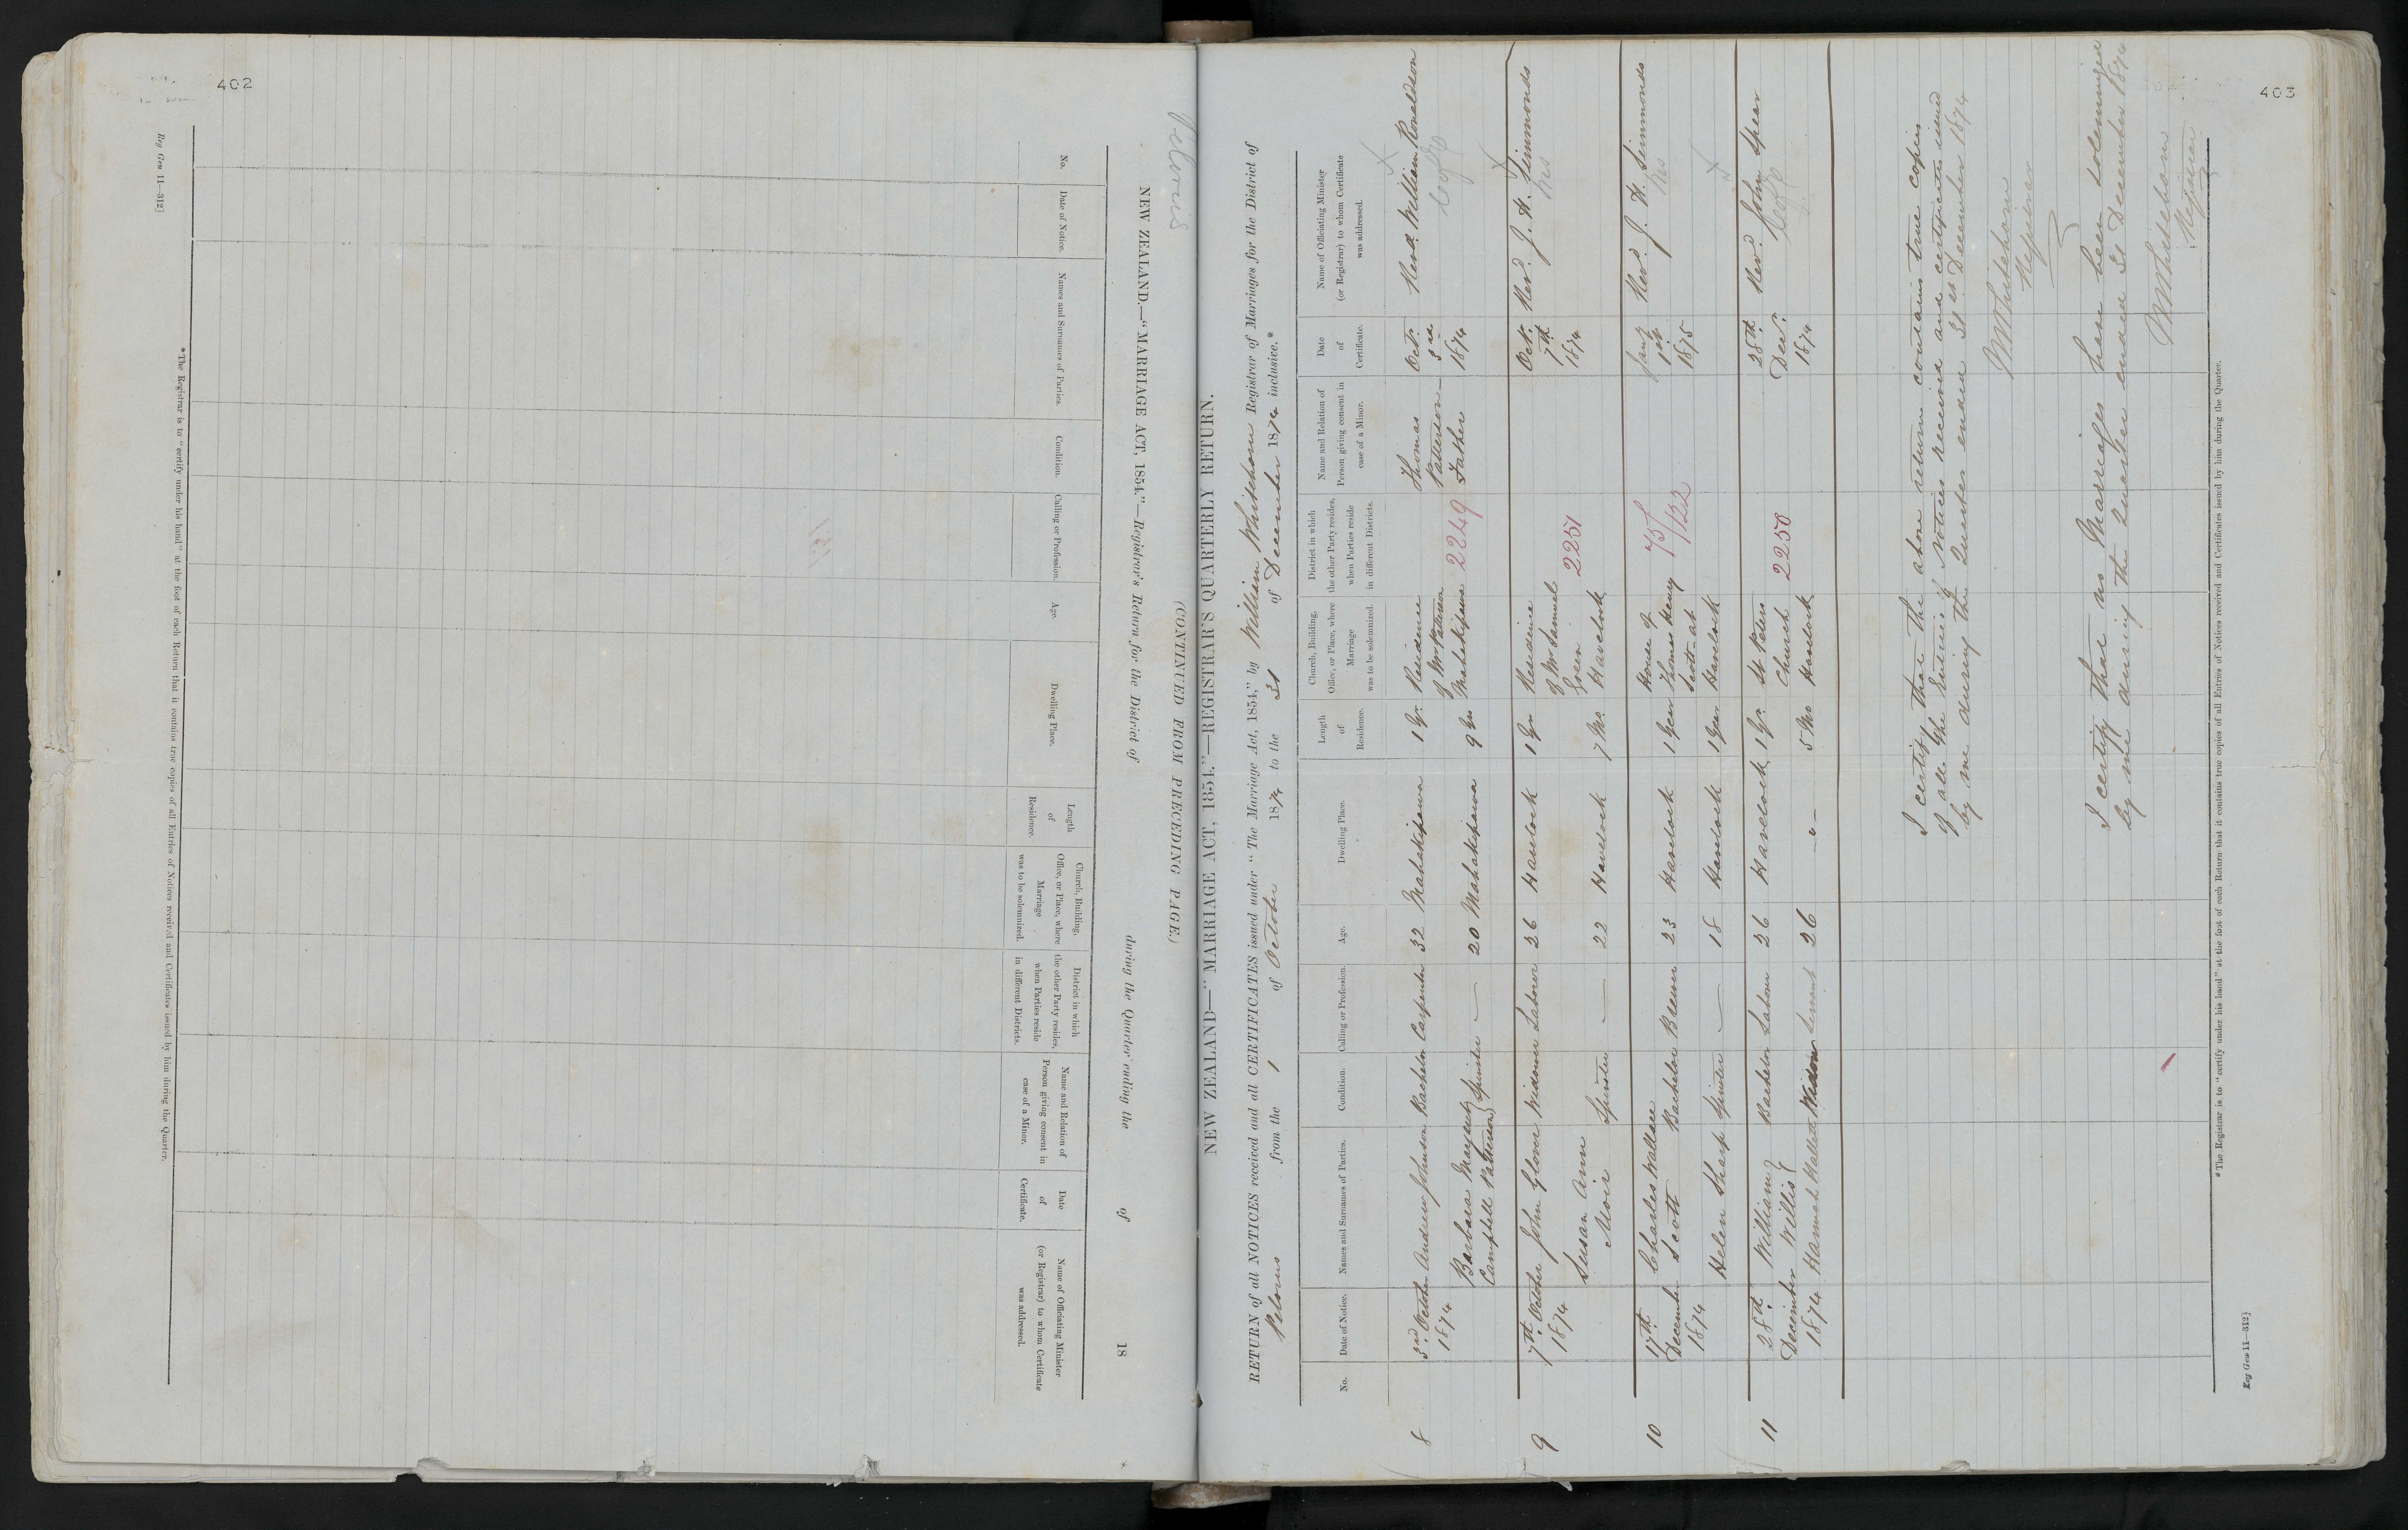 402
Reg Gen 11—312]
NEW ZEALAND.—"MARRIAGE ACT, 1854."—Registrar's Return for the District of during the Quarter ending the of 18
(CONTINUED FROM PRECEDING PAGE.)
No.
Date of Notice.
Names and Surnames of Parties.
Condition.
Calling or Profession.
Age.
Dwelling Place.
Length
of
Residence.
Church, Building,
Office, or Place, where
Marriage
was to be solemnized.
District in which
the other Party resides,
when Parties reside
in different Districts.
Name and Relation of
Person giving consent in
case of a Minor.
Date
of
Certificate.
Name of Officiating Minister
(or Registrar) to whom Certificate
was addressed.
* The Registrar is to "certify under his hand" at the foot of each Return that it contains true copies of all Entries of Notices received and Certificates issued by him during the Quarter.
403
Pelorus
NEW ZEALAND—"MARRIAGE ACT, 1854."—REGISTRAR'S QUARTERLY RETURN.
RETURN of all NOTICES received and all CERTIFICATES issued under "The Marriage Act, 1854," by William Whitehorn Registrar of Marriages for the District of
Pelorus from the 1 of October 1874 to the 31 of December 1874 inclusive.*
No.
Date of Notice.
Names and Surnames of Parties.
Condition.
Calling or Profession.
Age.
Dwelling Place.
Length
of
Residence.
Church, Building,
Office, or Place, where
Marriage
was to be solemnized.
District in which
the other Party resides,
when Parties reside
in different Districts.
Name and Relation of
Person giving consent in
case of a Minor.
Date
of
Certificate.
Name of Officiating Minister
(or Registrar) to whom Certificate
was addressed.
8
3rd October
1874
Andrew Johnson Bachelor Carpenter 32 Mahakipawa 1 Yr.
Barbara Margaret
Campbell Patterson Spinster — 20 Mahakipawa 9 Yrs
Residence
of Mr Paterson
Mahakipawa
2249
Thomas
Patterson
Father
Oct.
3rd
1874
Revd. William Ronaldson
9
7th October
1874
John Glover Widower Laborer 26 Havelock 1 Yr
Susan Ann
Moir Spinster — 22 Havelock 7 Mos
Residence
of Mr Samuel
Havelock
2251
Oct.
7th
1874
Revd. J. H. Simmonds
10
17th
December
1874
Charles Wallace
Scott Bachelor Brewer 23 Havelock 1 Year
Helen Sharp Spinster — 18 Havelock 1 Year
House of
Thomas Henry
Scott at
Havelock
75/132
Jany
1st
1875
Revd. J. H. Simmonds
11
28th
December
1874
William
Willis Bachelor Labour 26 Havelock 1 Yr.
Hannah Hallett Widow Servant 26 —"— 5 Mo
St Peters
Church
Havelock
2258
28th
Decr.
1874
Revd. John Spear
I certify that the above return contains true copies
of all the Entries of Notices received and certificates issued
by me during the Quarter ended 31st December 1874
W Whitehorn
Registrar
I certify that no Marriages have been solemnized
by me during the Quarter ended 31 December 1874
W Whitehorn
Registrar
* The Registrar is to "certify under his hand" at the foot of each Return that it contains true copies of all Entries of Notices received and Certificates issued by him during the Quarter.
Reg Gen 11—312]